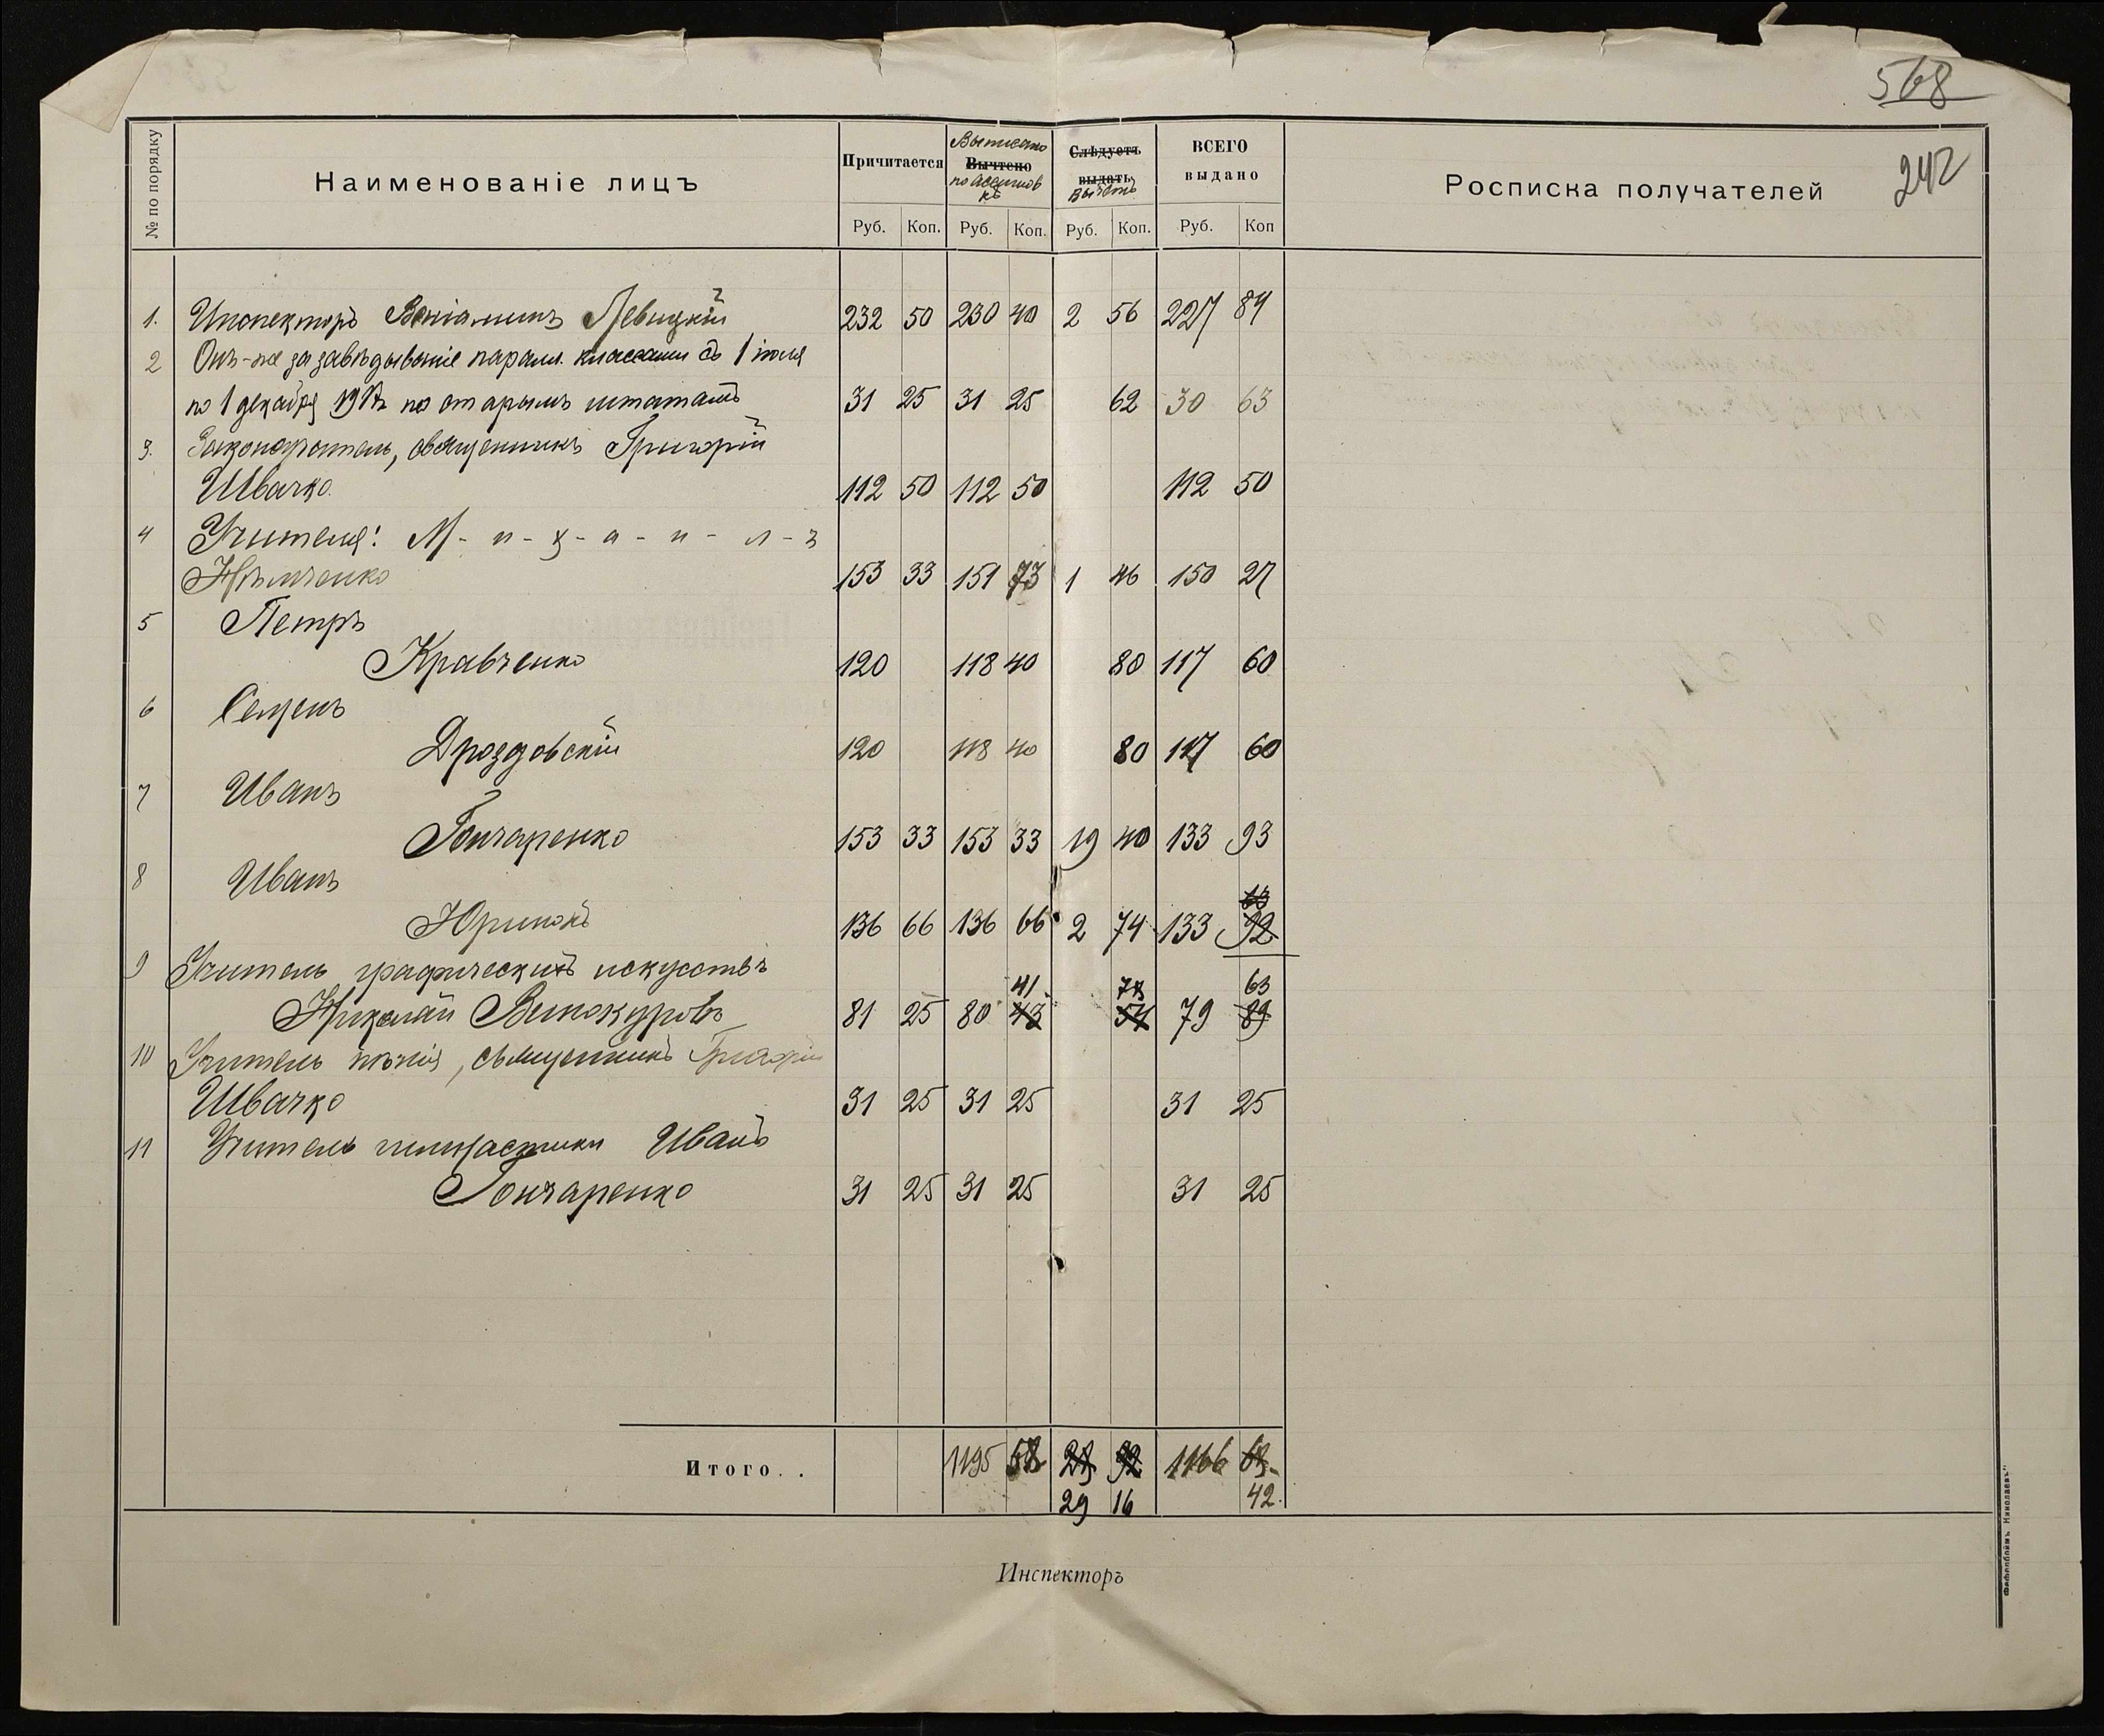 568
242
№ по порядку
Наименованіе лицъ
Причитается
Выписано
Вычтено
по ассигнов
кѣ
Слѣдуетъ
выдать
Вычетъ
ВСЕГО
выдано
Росписка получателей
Руб. Коп. Руб. Коп. Руб. Коп. Руб. Коп
1. Инспекторъ Веніаминъ Левицкій 232 50 230 40 2 56 227 84
2 Онъ-же за завѣдываніе паралл. классами съ 1 іюля
по 1 декабря 1917 по старымъ штатамъ 31 25 31 25 62 30 63
3. Законоучитель, священникъ Григорій
Швачко 112 50 112 50 112 50
4 Учителя: М-и-х-а-и-л-ъ
Нѣмченко 153 33 151 73 1 46 150 27
5 Петръ
Кравченко 120 118 40 80 117 60
6 Семенъ
Дроздовскій 120 118 40 80 117 60
7 Иванъ
Гончаренко 153 33 153 33 19 40 133 93
8 Иванъ
Юринокъ 136 66 136 66 2 74 133 92
9 Учитель графическихъ искусствъ 41 63
Николай Винокуровъ 81 25 80 43 54 79 89
10 Учитель пѣнія, священникъ Григорій
Швачко 31 25 31 25 31 25
11 Учитель гимнастики Иванъ
Гончаренко 31 25 31 25 31 25
Итого.. 1195 58 1166
29 16 42.
Инспекторъ